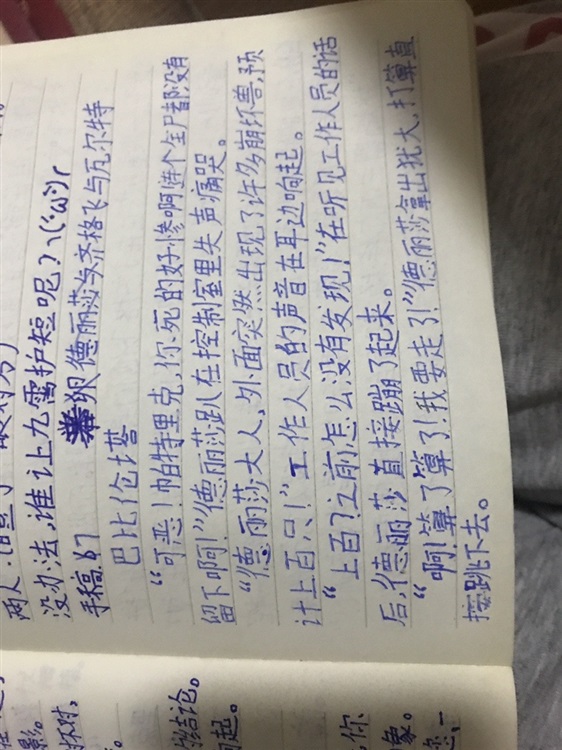 两人
没办法,谁让九霄护短呢?╮(′ω‵)╭
手稿.67
卵德丽莎与齐格飞与瓦尔特
巴比伦塔
“可恶!帕特里克,你死的好惨啊!连个全尸都没有
留下啊!”德丽莎趴在控制室里失声痛哭。
“德丽莎大人,外面突然出现了许多崩坏兽,预
计上百只!”工作人员的声音在耳边响起。
“上百?之前怎么没有发现!”在听见工作人员的话
后,德丽莎直接蹦了起来。
“啊!算了算了!我要走了!”德丽莎拿出犹大,打算直
接跳下去。
影。
对,
的结论。
起。
你
象。